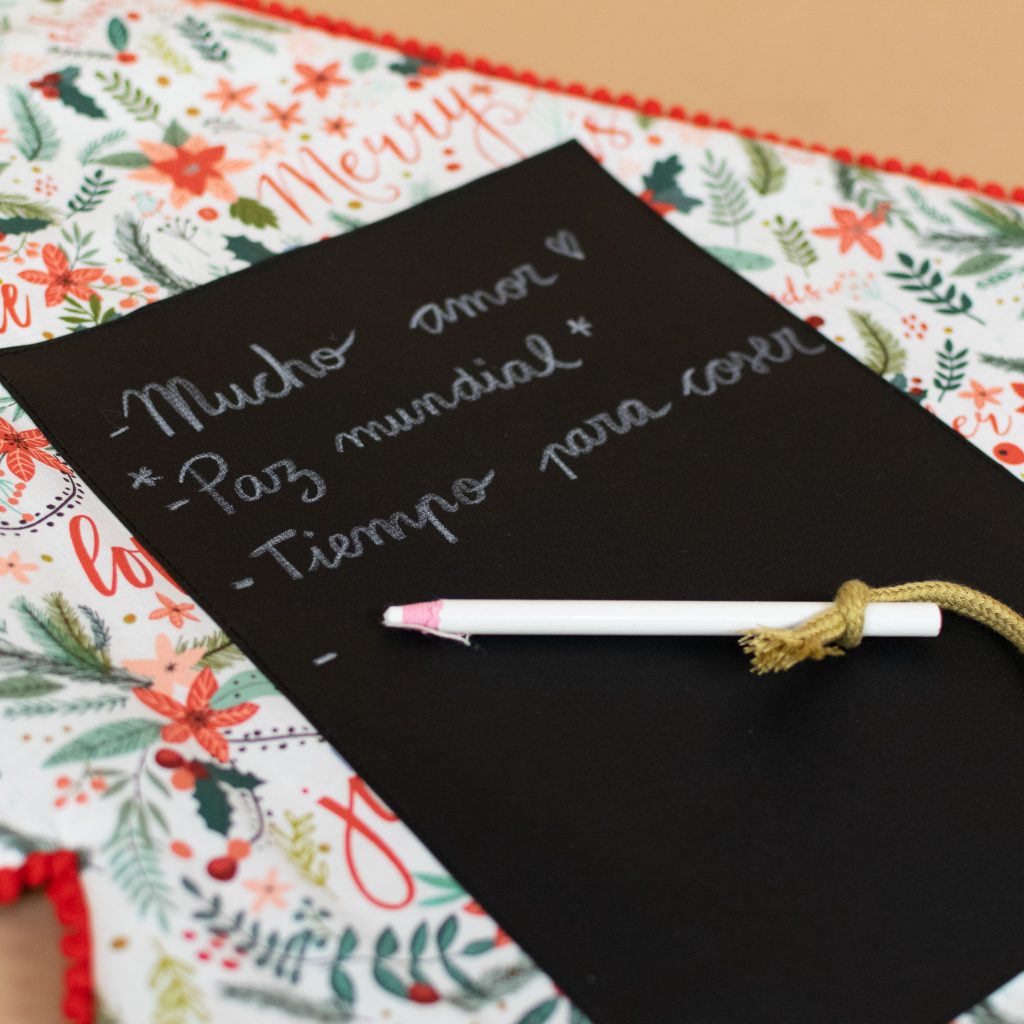 Merry
- Mucho amor ♡
* - Paz mundial *
- Tiempo para coser
-